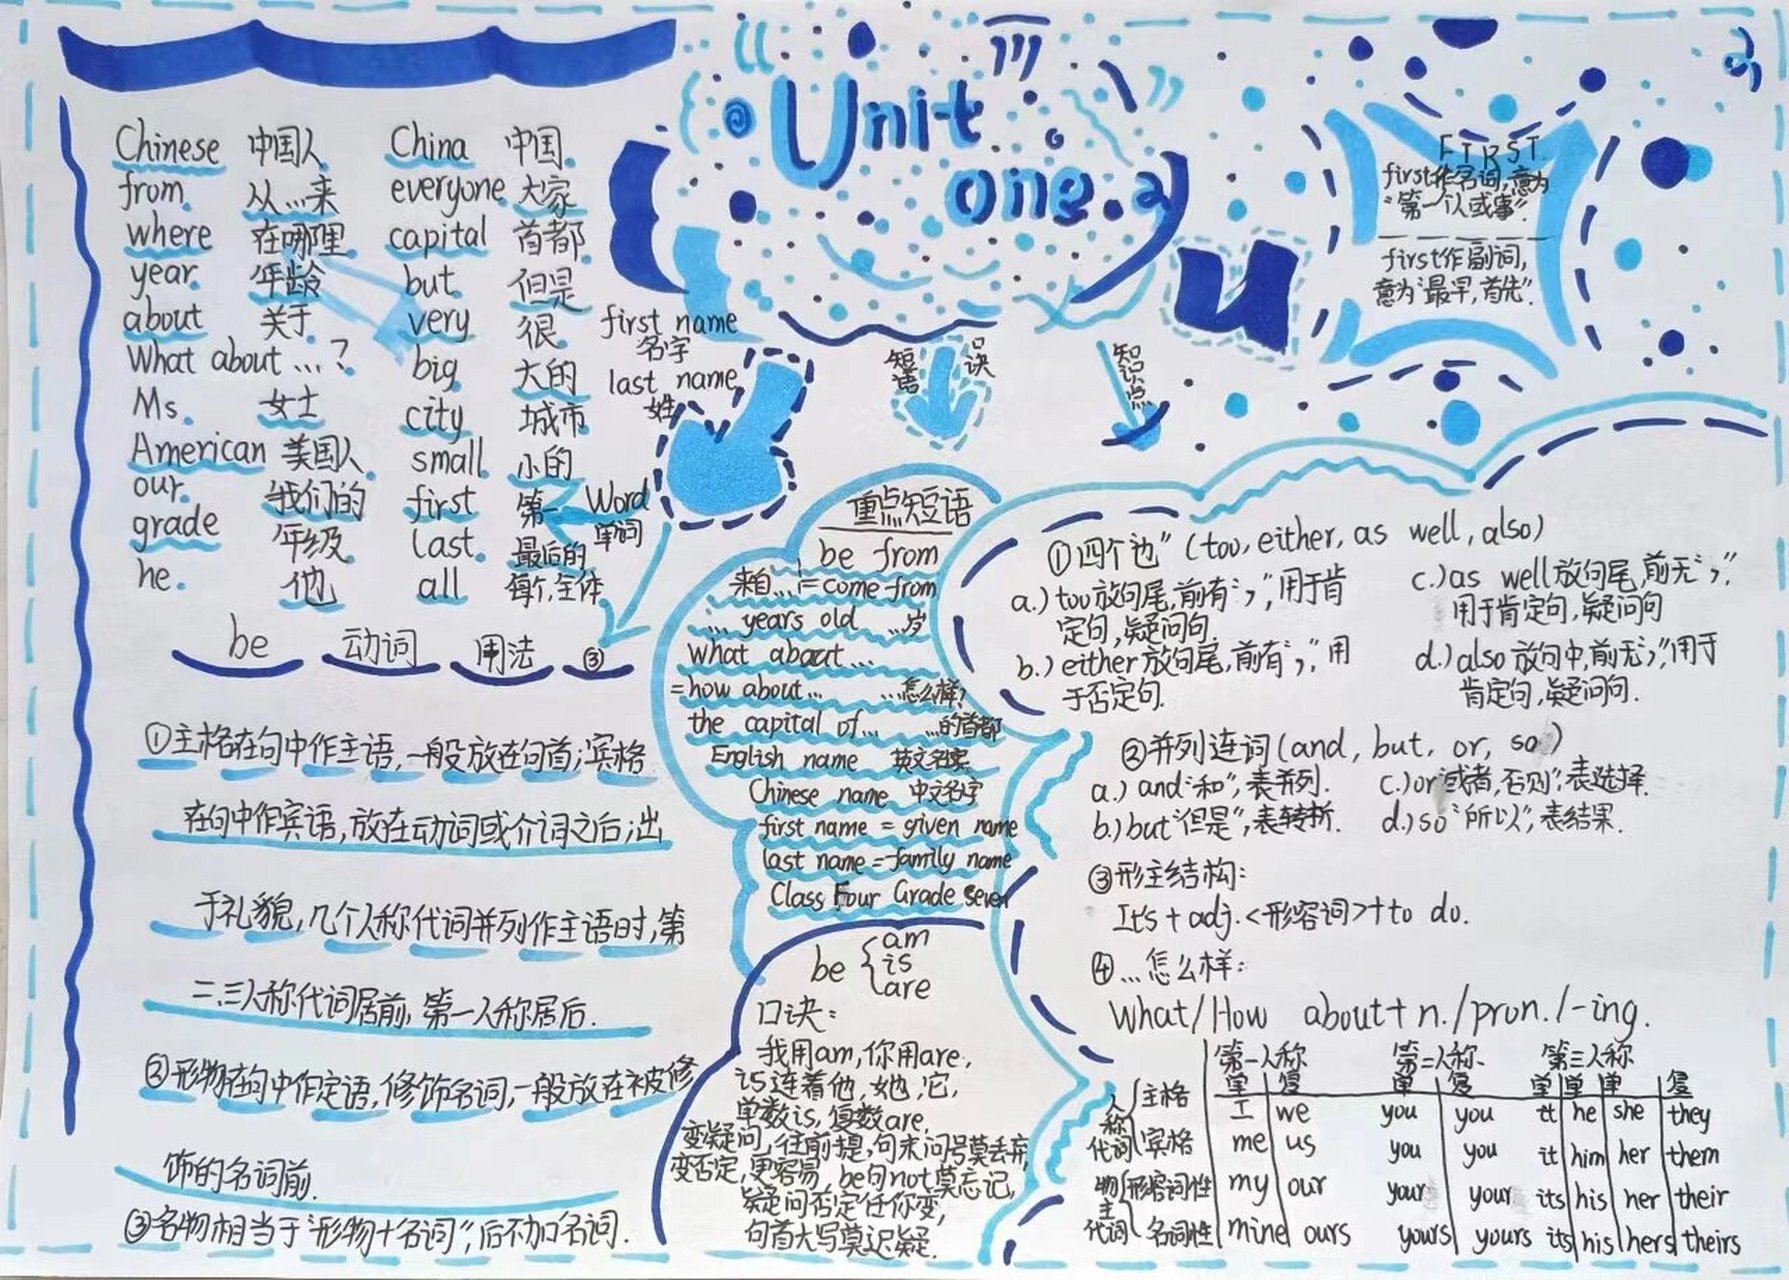 Unit
one
Chinese 中国人 China 中国
from 从...来 everyone 大家
where 在哪里 capital 首都
year 年龄 but 但是
about 关于 very 很
What about ...? big 大的
Ms. 女士 city 城市
American 美国人 small 小的
our 我们的 first 第一
grade 年级 last 最后的
he 他 all 每个,全体
first name
名字
last name
姓
Word
单词
短语
口诀
知识点
FIRST.
first作名词,意为
“第一个人或事”.
first作副词,
意为“最早,首先”.
be 动词 用法 ③
①主格在句中作主语,一般放在句首;宾格
在句中作宾语,放在动词或介词之后;出
于礼貌,几个人称代词并列作主语时,第
二.三人称代词居前,第一人称居后.
②形物在句中作定语,修饰名词,一般放在被修
饰的名词前.
③名物相当于“形物+名词”,后不加名词.
重点短语
be from
来自...=come from
... years old ...岁
what about...
=how about... ...怎么样?
the capital of... ...的首都
English name 英文名字
Chinese name 中文名字
first name = given name
last name = family name
Class Four Grade Seven
be { am
is
are
口诀:
我用am,你用are,
is连着他,她,它,
单数is,复数are,
变疑问,往前提,句末问号莫丢弃,
变否定,更容易,be句not莫忘记,
疑问否定任你变,
句首大写莫迟疑.
①四个也”(too, either, as well, also)
a.) too放句尾,前有“,”,用于肯
定句,疑问句
b.) either放句尾,前有“,”,用
于否定句.
c.) as well放句尾,前无“,”,
用于肯定句,疑问句
d.) also放句中,前无“,”,用于
肯定句,疑问句.
②并列连词(and, but, or, so)
a.) and“和”,表并列. c.) or“或者,否则”,表选择.
b.) but“但是”,表转折. d.) so“所以”,表结果.
③形主结构:
It's + adj.<形容词>+to do.
④...怎么样:
What/How about+n./pron./-ing.
第一人称 第二人称 第三人称
单 复 单 复 单 单 单 复
人称代词 { 主格 I we you you it he she they
宾格 me us you you it him her them
物主代词 { 形容词性 my our your your its his her their
名词性 mine ours yours yours its his hers theirs